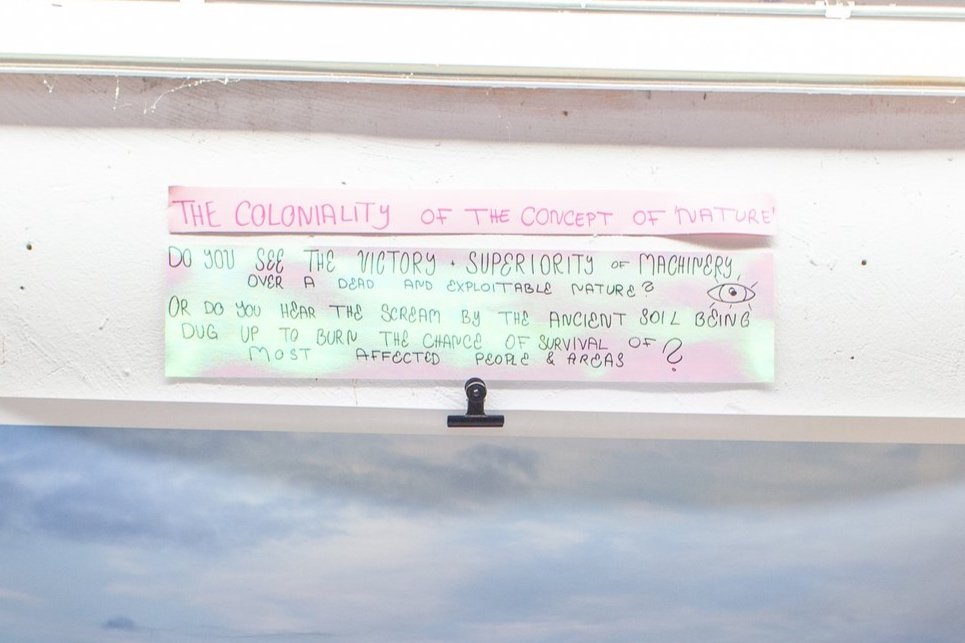 THE COLONIALITY OF THE CONCEPT OF 'NATURE'
DO YOU SEE THE VICTORY + SUPERIORITY OF MACHINERY,
OVER A DEAD AND EXPLOITABLE NATURE?
OR DO YOU HEAR THE SCREAM BY THE ANCIENT SOIL BEING
DUG UP TO BURN THE CHANCE OF SURVIVAL OF
MOST AFFECTED PEOPLE & AREAS ?